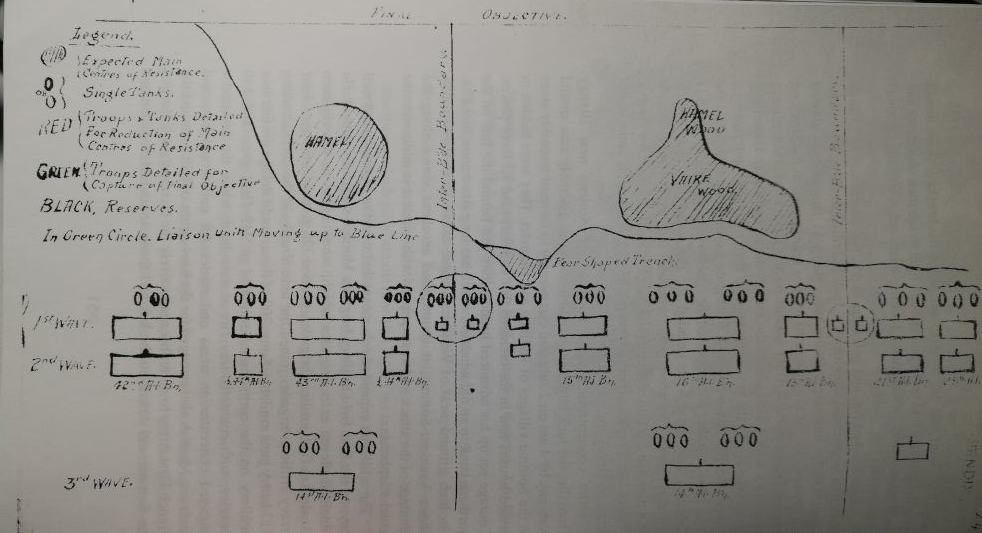 FINAL OBJECTIVE.
Legend.
Expected Main
Centres of Resistance.
or
Single Tanks.
RED
Troops & Tanks Detailed
For Reduction of Main
Centres of Resistance
GREEN
Troops Detailed for
Capture of Final Objective
BLACK, Reserves.
In Green Circle. Liaison Unit Moving up to Blue Line
HAMEL
Inter-Bde Boundary.
HAMEL
WOOD
VAIRE
WOOD.
Inter-Bde Boundary.
Pear Shaped Trench.
1st WAVE.
2nd WAVE.
42nd A.I. Bn.
½ 44th A.I. Bn.
43rd A.I. Bn.
½ 44th A.I. Bn.
15th A.I. Bn.
16th A.I. Bn.
15th A.I. Bn.
21st A.I. Bn.
3rd WAVE.
14th A.I. Bn.